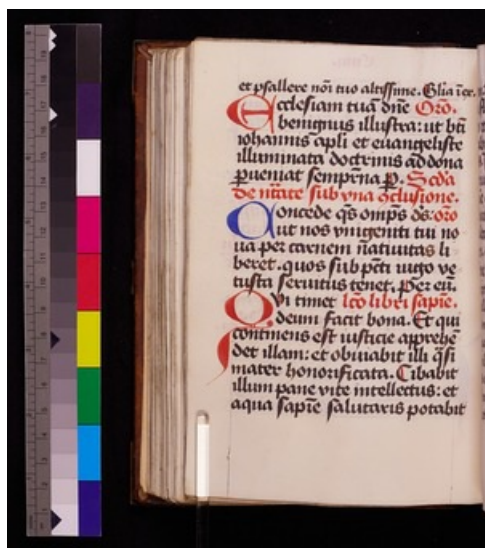 et psallere noi̅ tuo altissime. Glia i̅ ex.
Ecclesiam tua̅ dn̅e Oro̅.
benignus illustra: ut bt̅i
iohannis ap̅li et euangeliste
illuminata doctrinis ad dona
ꝑueniat sempit̅na ꝑ. Scd̅a
de nt̅ate sub vna ꝯclusione.
Concede qs̅ omp̅s ds̅: oro̅
ut nos vnigeniti tui no
ua per carnem natiuitas li
beret. quos sub pct̅i iugo ve
tusta seruitus tenet. Per eu̅.
Qvi timet lc̅o libri sapie̅.
deum faciet bona. Et qui
continens est iusticie apprehe̅
det illam: et obuiabit illi q̅si
mater honorificata. Cibabit
illum pane vite intellectus: et
aqua sapie̅ salutaris potabit